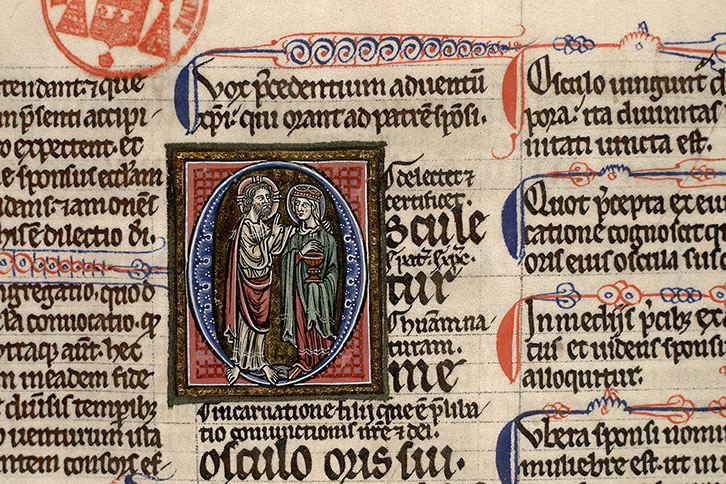 tendant: ⁊ que
m p̃senti accipi
o expectent. et
e sponsus eccl̃am
dans: ⁊ iam om̃es
dilectio di.
ngregatio. quo d̃
ra conuocatio. q̃
aut̃. hec
m in eadem fide
diũsis temp̃ib;
o uenturum ista
ntem consors ef
Vox p̃cedentium aduentũ
xp̃i. qui orant ad patrẽ sp̃õsi.
O
s delectet ⁊
certificet.
scule
s pat̃ s xp̃c.
tur
s humanã na
turam.
me
s incarnatione filij que ẽ p̃liba
tio coniunctionis nr̃e ⁊ dei.
osculo oris sui.
Osculo iungunt̃ c
pora. ita diuinitas
nitati iuncta est.
Quot p̃cepta ex eui
ratione cognoscit qui
oris eius oscula susc
In medijs p̃cib; ex
tus et uideris sponsũ
alloquitur.
Vbera sponsi nomin
muliebre est. ut in